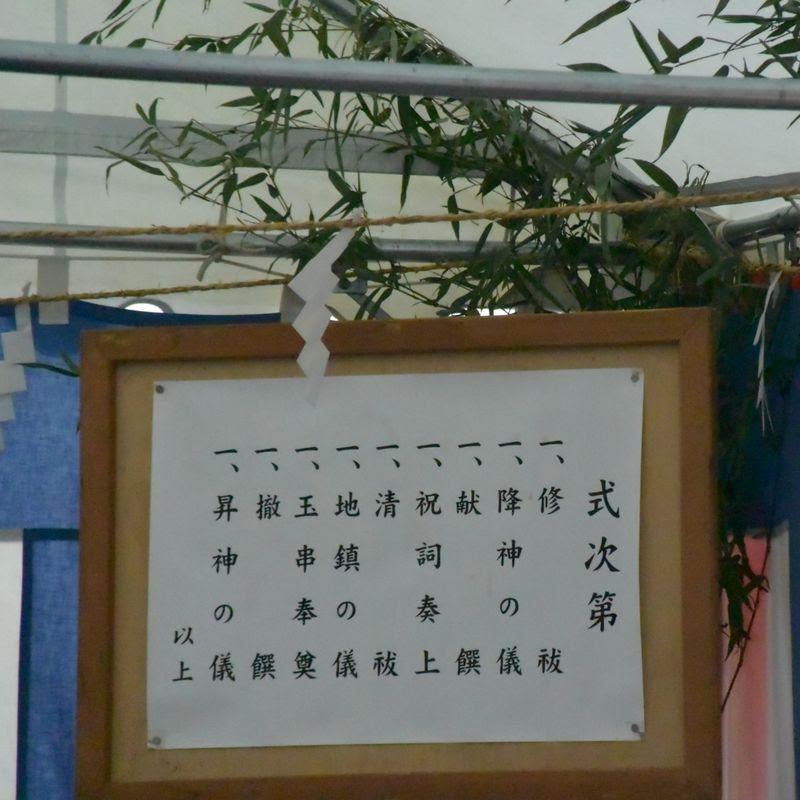 式次第
一、修祓
一、降神の儀
一、献饌
一、祝詞奏上
一、清祓
一、地鎮の儀
一、玉串奉奠
一、撤饌
一、昇神の儀
以上